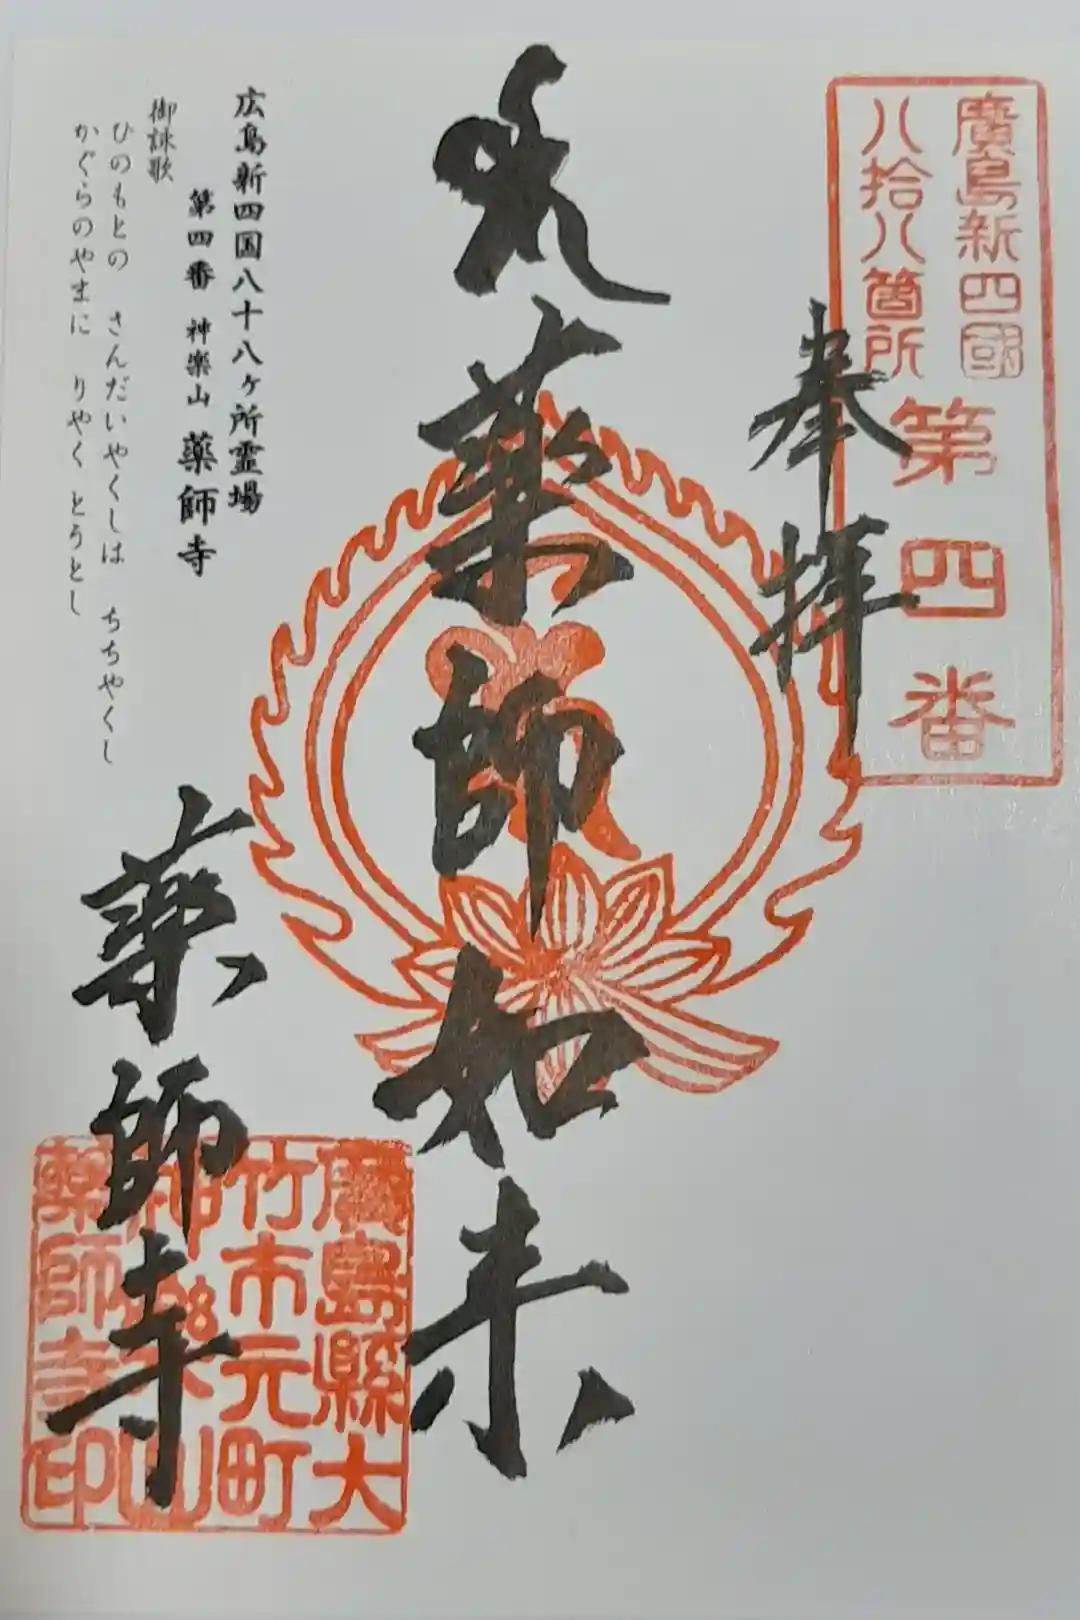 廣島新四國
八拾八箇所
第四番
奉拝
薬師如来
広島新四国八十八ヶ所霊場
第四番 神楽山 薬師寺
御詠歌
ひのもとの さんだいやくしは ちちやくし
かぐらのやまに りやくとうとし
薬師寺
廣島縣大
竹市元町
神樂山
薬師寺印